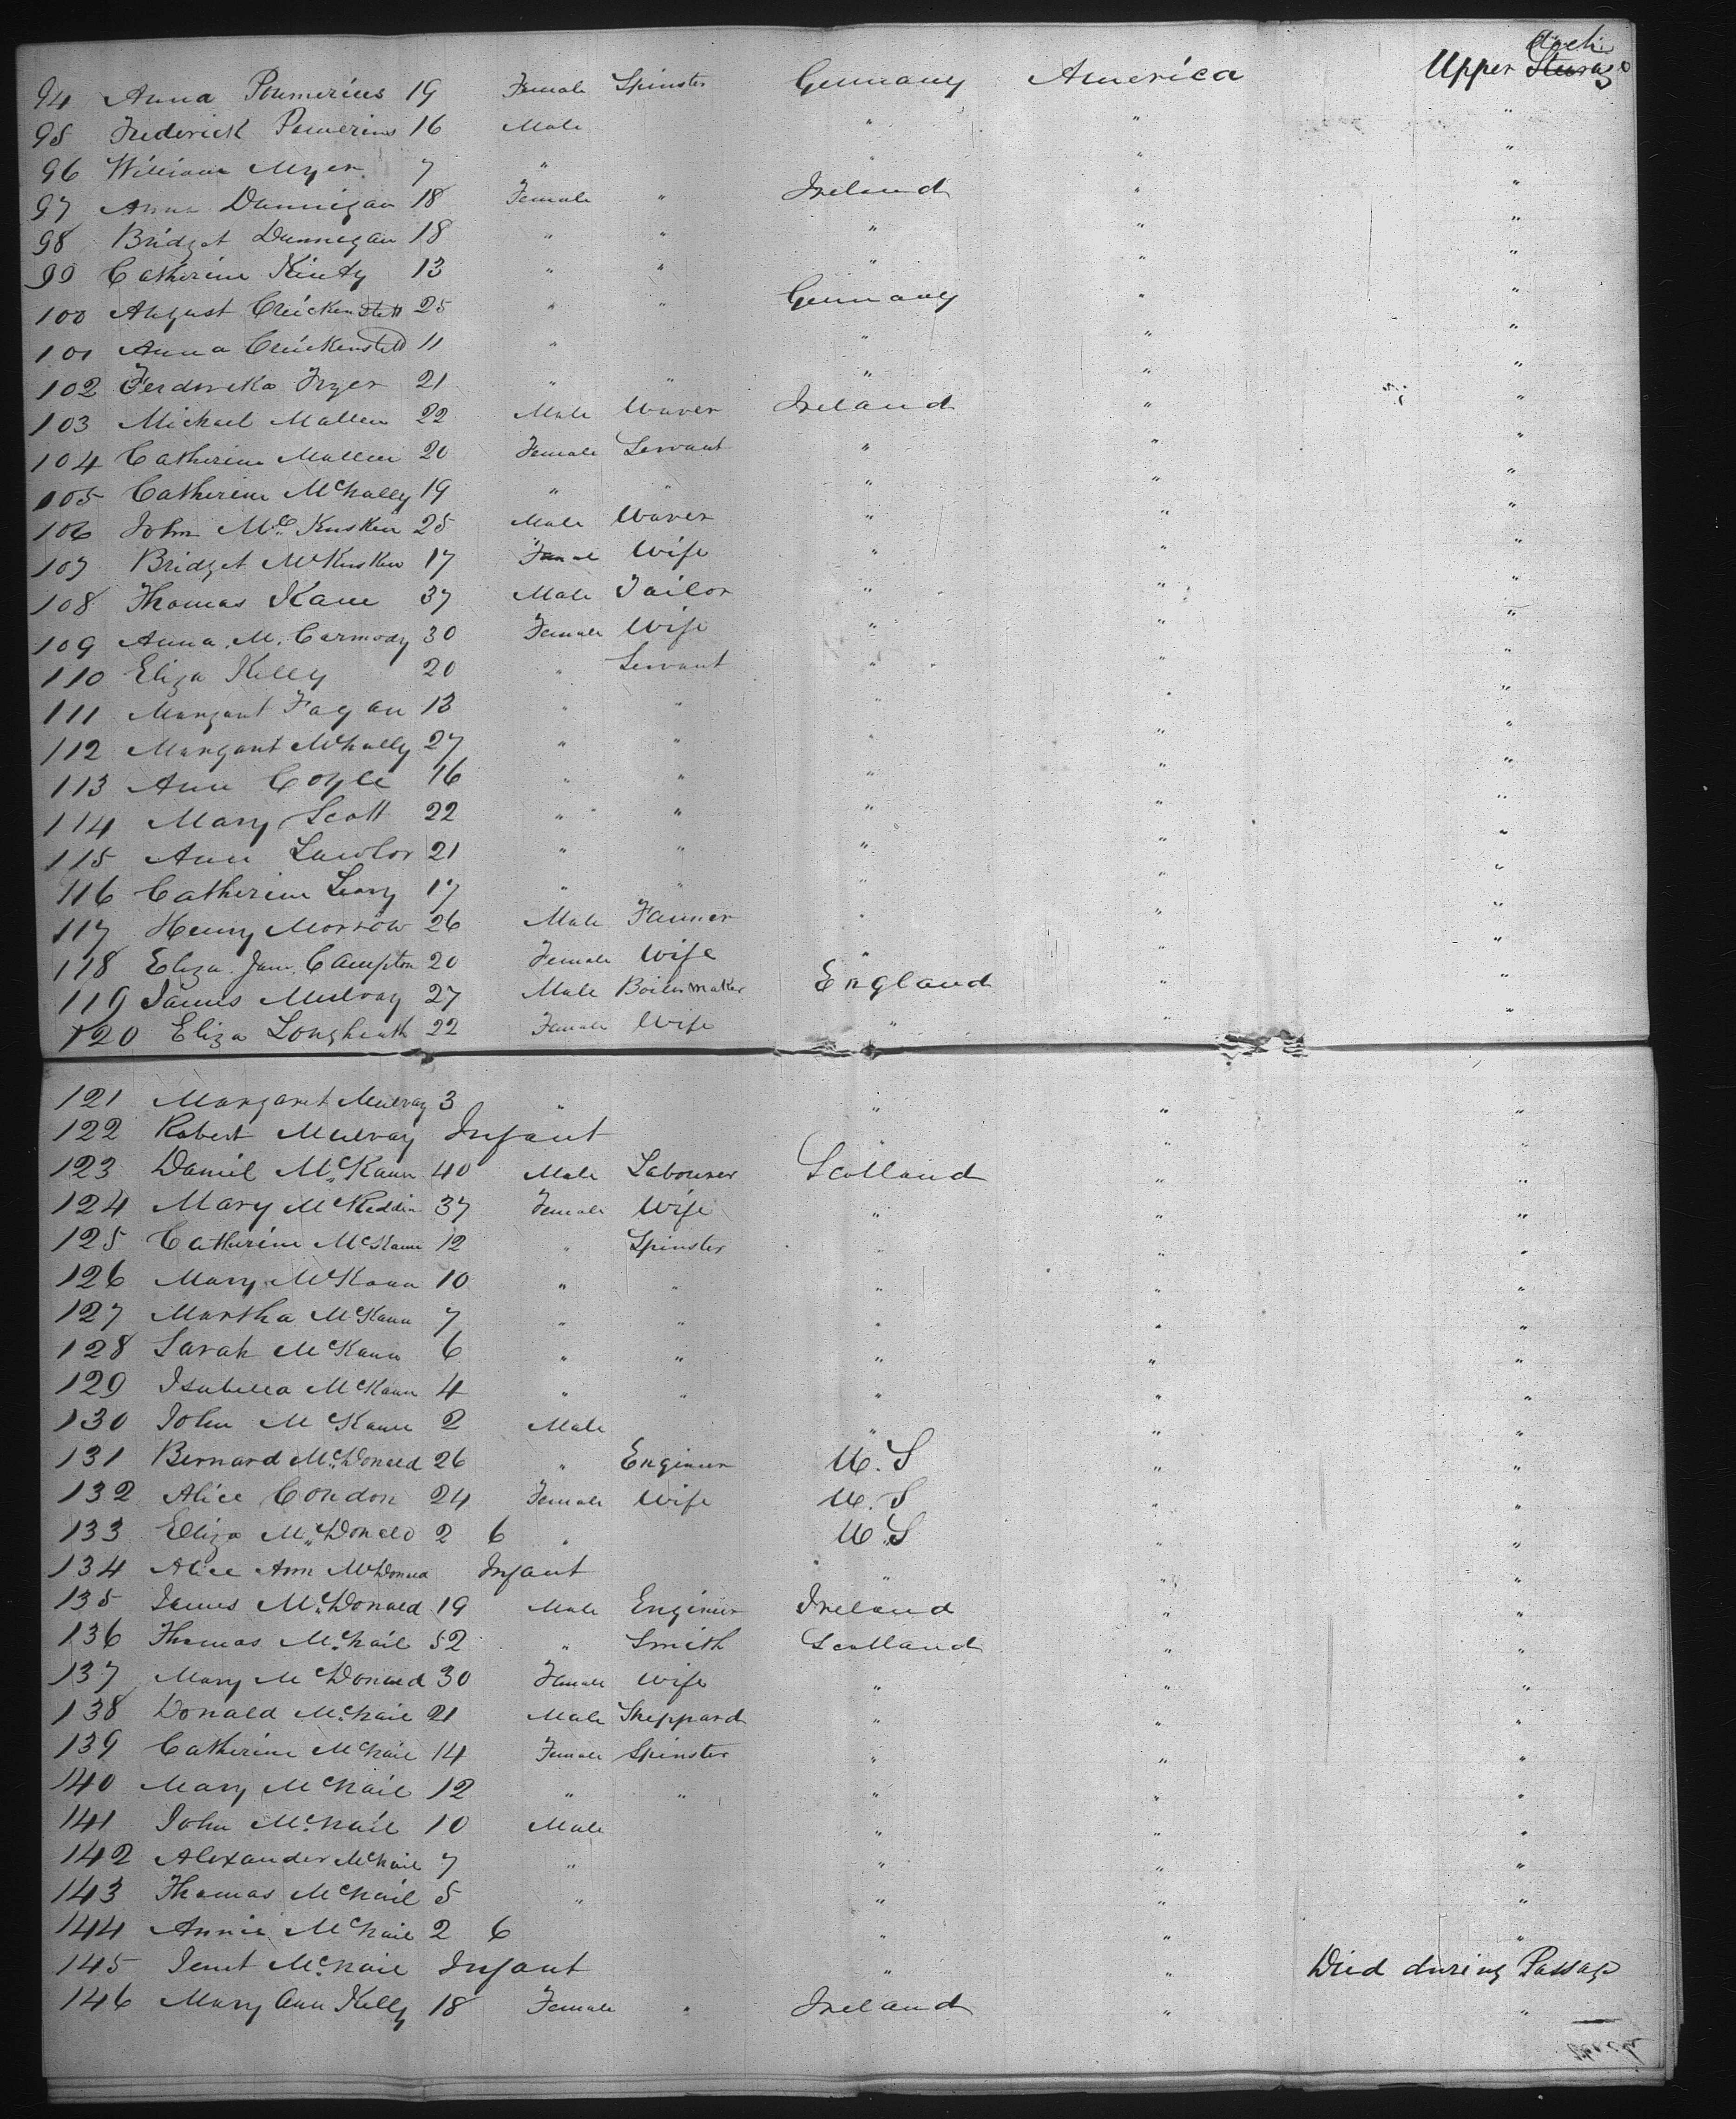 94 Anna Pommerins 19 Female Spinster Germany America Upper Deck
95 Frederick Pomerins 16 Male " " "
96 William Myer 7 " " " "
97 Anna Dunnigan 18 Female " Ireland " "
98 Bridget Dunnegan 18 " " " " "
99 Catherine Kinty 13 " " " " "
100 August 25 " " Germany " "
101 Anna 11 " " " "
102 21 " " " " "
103 Michael Mallen 22 Male Waver Ireland " "
104 Catherine Mallen 20 Female Servant " " "
105 Catherine McNally 19 " " " " "
106 John Mc Kusken 25 Male Waver " " "
107 Bridget McKusken 17 Wife " " "
108 Thomas Kane 37 Male Tailor " " "
109 Anna M. Carmody 30 Female Wife " " "
110 Eliza Kelly 20 " Servant " " "
111 Margaret Fagan 13 " " " " "
112 Margaret McNally 27 " " " " "
113 Ann Coyle 16 " " " " "
114 Mary Scott 22 " " " " "
115 Ann Lawlor 21 " " " " "
116 Catherine Leary 17 " " " " "
117 Henry Morrow 26 Male Farmer " " "
118 Eliza Jane Campton 20 Female Wife " " "
119 James Mulvay 27 Male Boilermaker England " "
120 Eliza 22 Female Wife " " "
121 Margaret Mulvay 3 " " " "
122 Robert Mulvay Infant " " "
123 Daniel McKann 40 Male Labourer Scotland " "
124 Mary 37 Female Wife " " "
125 Catherine McKann 12 " Spinster " " "
126 Mary McKann 10 " " " " "
127 Martha McKann 7 " " " " "
128 Sarah McKann 6 " " " " "
129 Isabella McKann 4 " " " " "
130 John McKann 2 Male " " "
131 Bernard McDonald 26 " Engineer U.S " "
132 Alice Condon 24 Female Wife U.S " "
133 Eliza McDonald 2 6 " U.S " "
134 Alice Ann McDonald Infant " " "
135 James McDonald 19 Male Engineer Ireland " "
136 Thomas McNail 52 " Smith Scotland " "
137 Mary McDonald 30 Female Wife " " "
138 Donald McNail 21 Male Sheppard " " "
139 Catherine McNail 14 Female Spinster " " "
140 Mary McNail 12 " " " " "
141 John McNail 10 Male " " "
142 Alexander McNail 7 " " " "
143 Thomas McNail 5 " " " "
144 Annie McNail 2 6 " " "
145 Jenet McNail Infant " " Died during Passage
146 Mary Ann Kelly 18 Female " Ireland " "